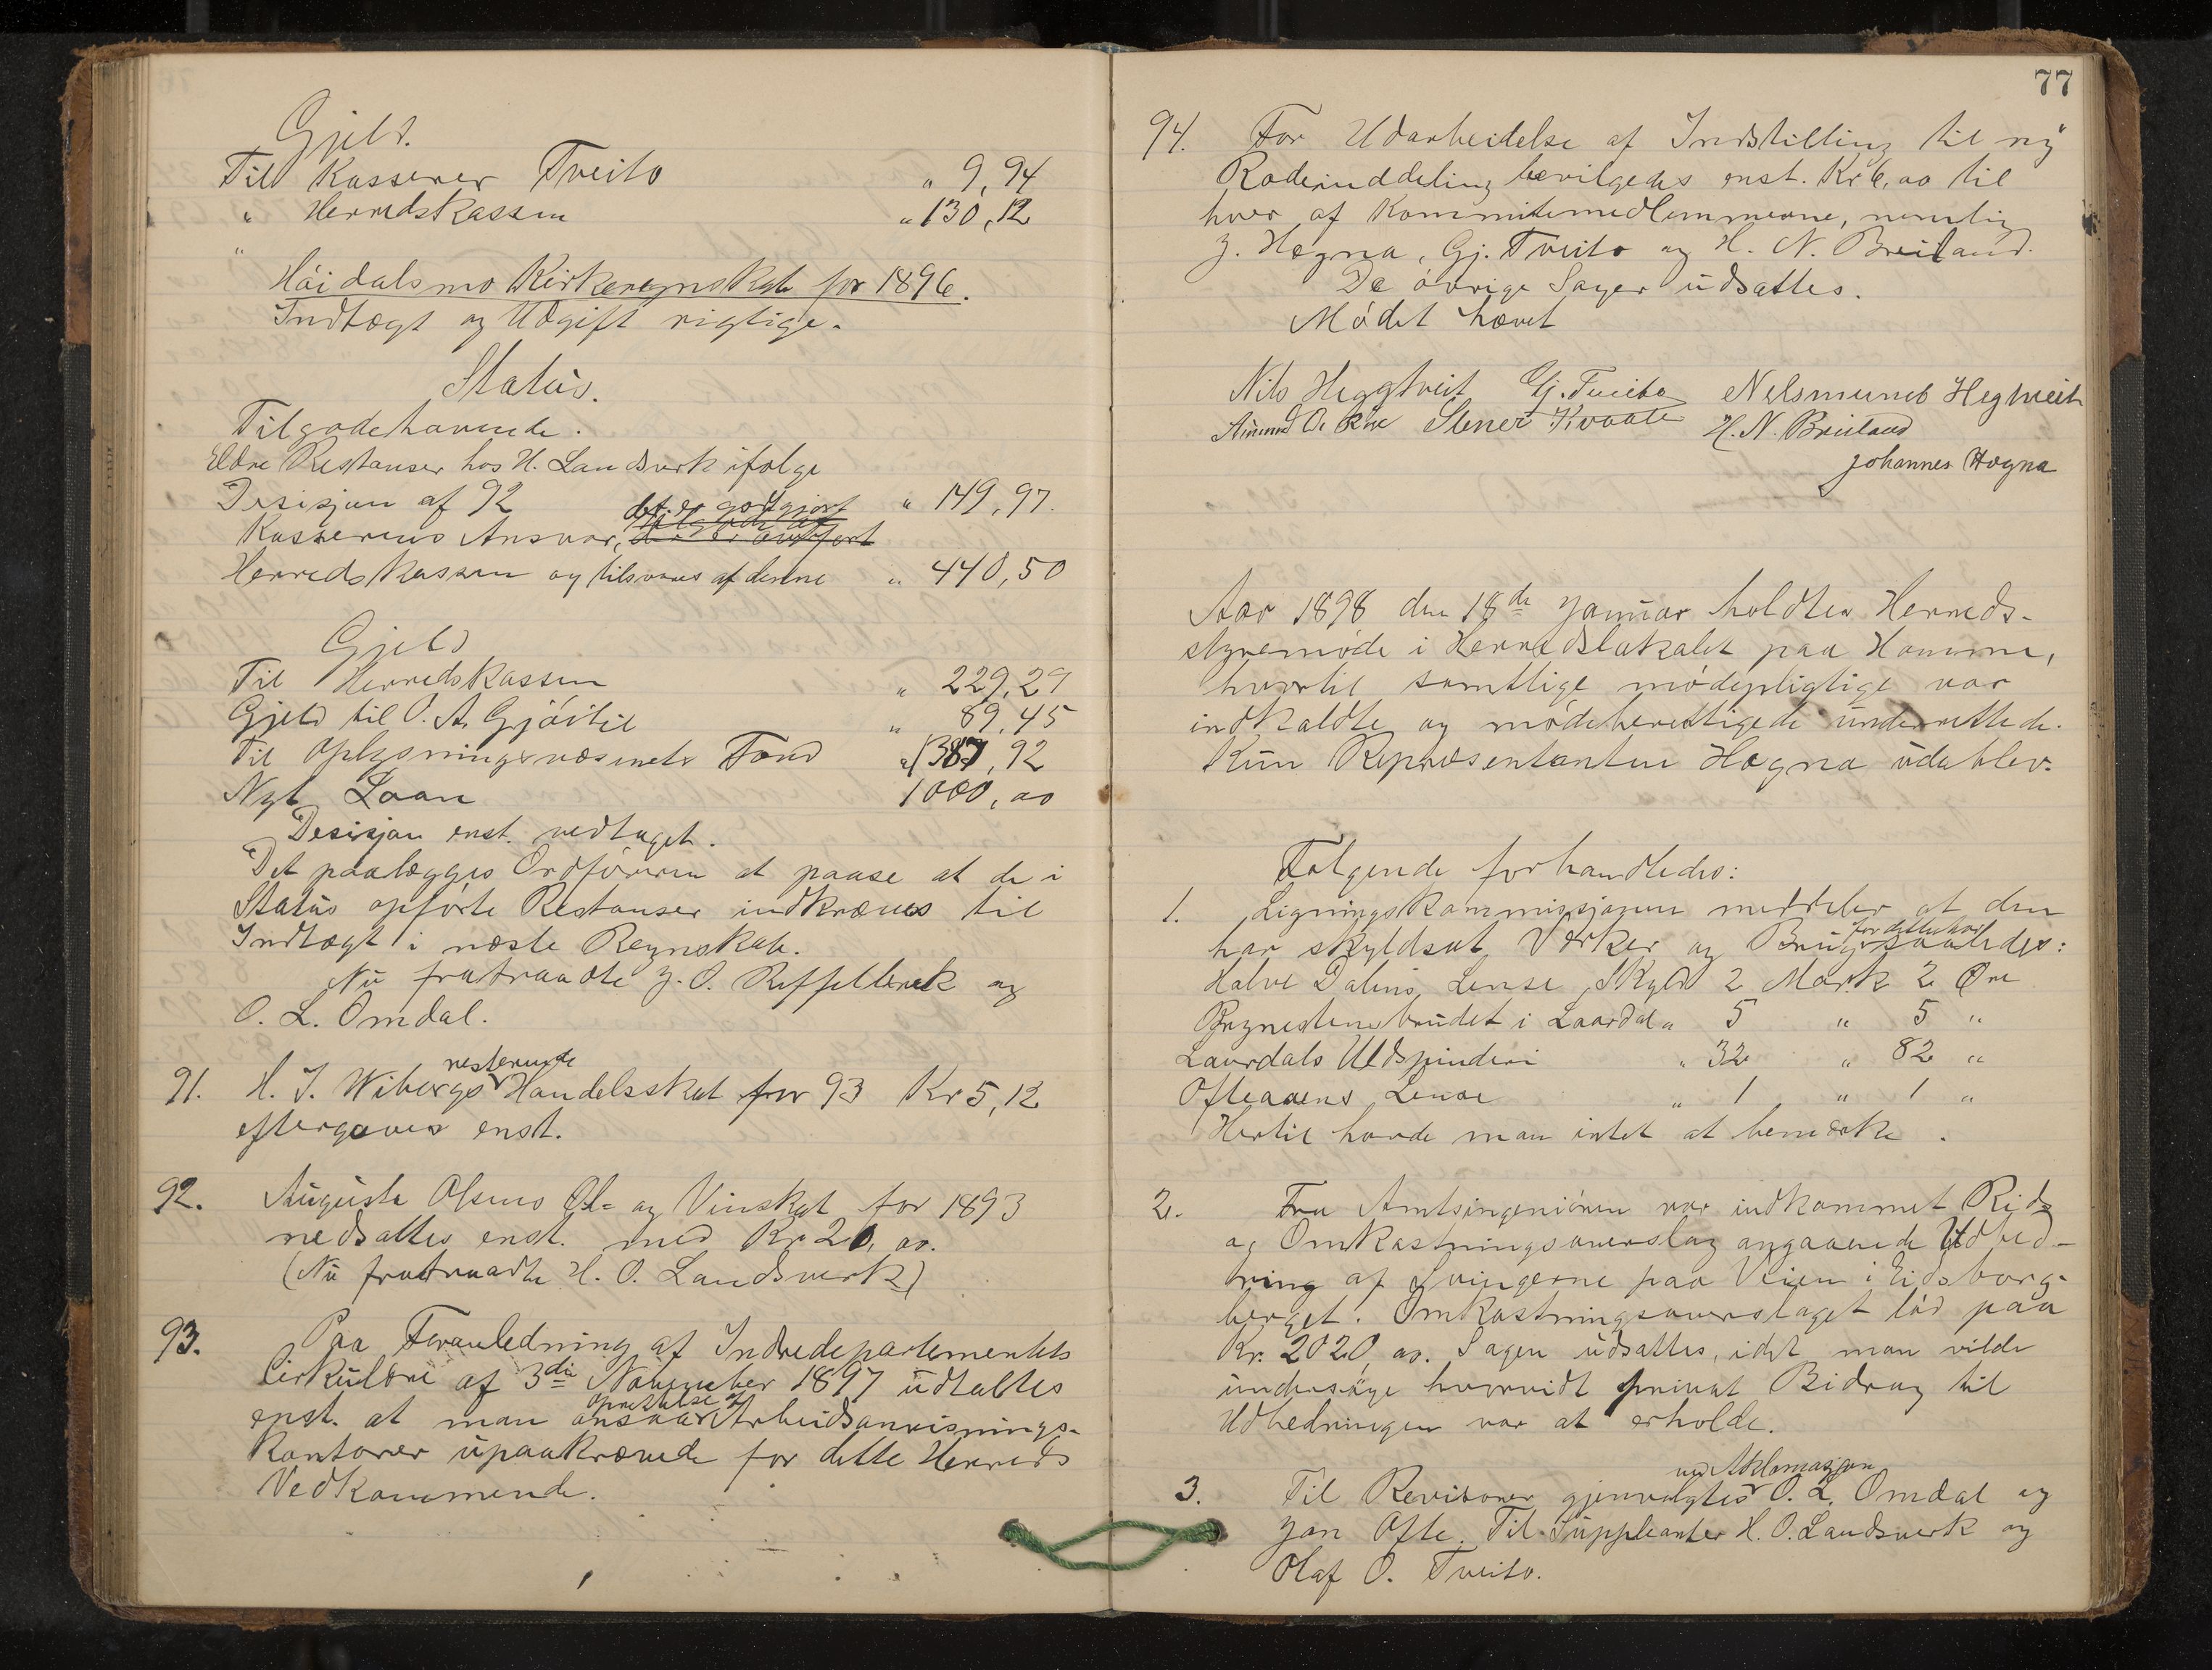 Gjeld.
Til Kasserer Tveito " 9,94
" Herredskassen " 130,12
"
Høidalsmo Kirkeregnskab for 1896.
Indtægt og Udgift rigtige.
Status.
Tilgodehavende.
Eldre Restanser hos H. Landsverk ifølge
Desisjon af 92 " 149,97.
det er godtgjort
Kasserens Ansvar,
Herredskassen og tilsvares af denne " 440,50
Gjeld
Til Herredskassen " 229,29
Gjeld til O. A. Gjøitil " 89,45
Til Oplysningsvæsenets Fond " 1387,92
Nyt Laan 1000,00
Desisjon enst. vedtaget.
Det paalægges Ordføreren at paase at de i
Status opførte Restanser indkræves til
Indtægt i næste Regnskab.
Nu fratraadte J. O. Reffelbrek og
O. L. Omdal.
91. H. J. Wibergs resterende Handelsskat for 93 Kr 5,12
eftergaves enst.
92. Auguste Olsens Øl- og Vinskat for 1893
nedsattes enst. med Kr 20,00.
(Nu fratraadte H. O. Landsverk)
93. Paa Foranledning af Indredepartementets
Cirkulære af 3die November 1897 udtaltes
enst. at man ansaar oprettelse af Arbeidsanvisnings-
kontorer upaakrævede for dette Herreds
Vedkommende.
77
94. For Udarbeidelse af Indstilling til ny
Rodeinddeling bevilgedes enst. Kr 6,00 til
hver af Kommitemedlemmerne, nemlig
J. Hogna, Gj. Tveito og H. N. Breiland.
De øvrige Sager udsattes.
Mødet hævet
Nils Heggtveit Gj. Tveito Nelsmund Hegtveit
Aamund O. Rue Stener Kvaale H. N. Breiland
Johannes Hogna
Aar 1898 den 18de Januar holdtes Herreds-
styremøde i Herredslokalet paa Hamre,
hvortil samtlige mødepligtige var
indkaldte og mødeberettigede underrettede.
Kun Repræsentanten Hogna udeblev.
Følgende forhandledes:
1. Ligningskommissjonen meddeler at den
har skyldsat Verker og Brug for dette aar saaledes:
Halve Dalens Lense, Skyld 2 Mark 2 Øre
Brynestensbrudet i Laardal " 5 " 5 "
Laurdals Uldspinderi " 32 " 82 "
Ofteaaens Lense " 1 " 1 "
Hertil havde man intet at bemærke.
2. Fra Amtsingeniøren var indkommet Rids
og Omkostningsoverslag angaaende Udbed-
ring af Svingerne paa Veien i Eidsborg-
berget. Omkostningsoverslaget lød paa
Kr. 2020,00. Sagen udsattes, idet man vilde
undersøge hvorvidt privat Bidrag til
Udbedringen var at erholde.
3. Til Revisorer gjenvalgtes ved Aklamasjon O. L. Omdal og
Jon Ofte. Til Suppleanter H. O. Landsverk og
Olaf O. Tveito.